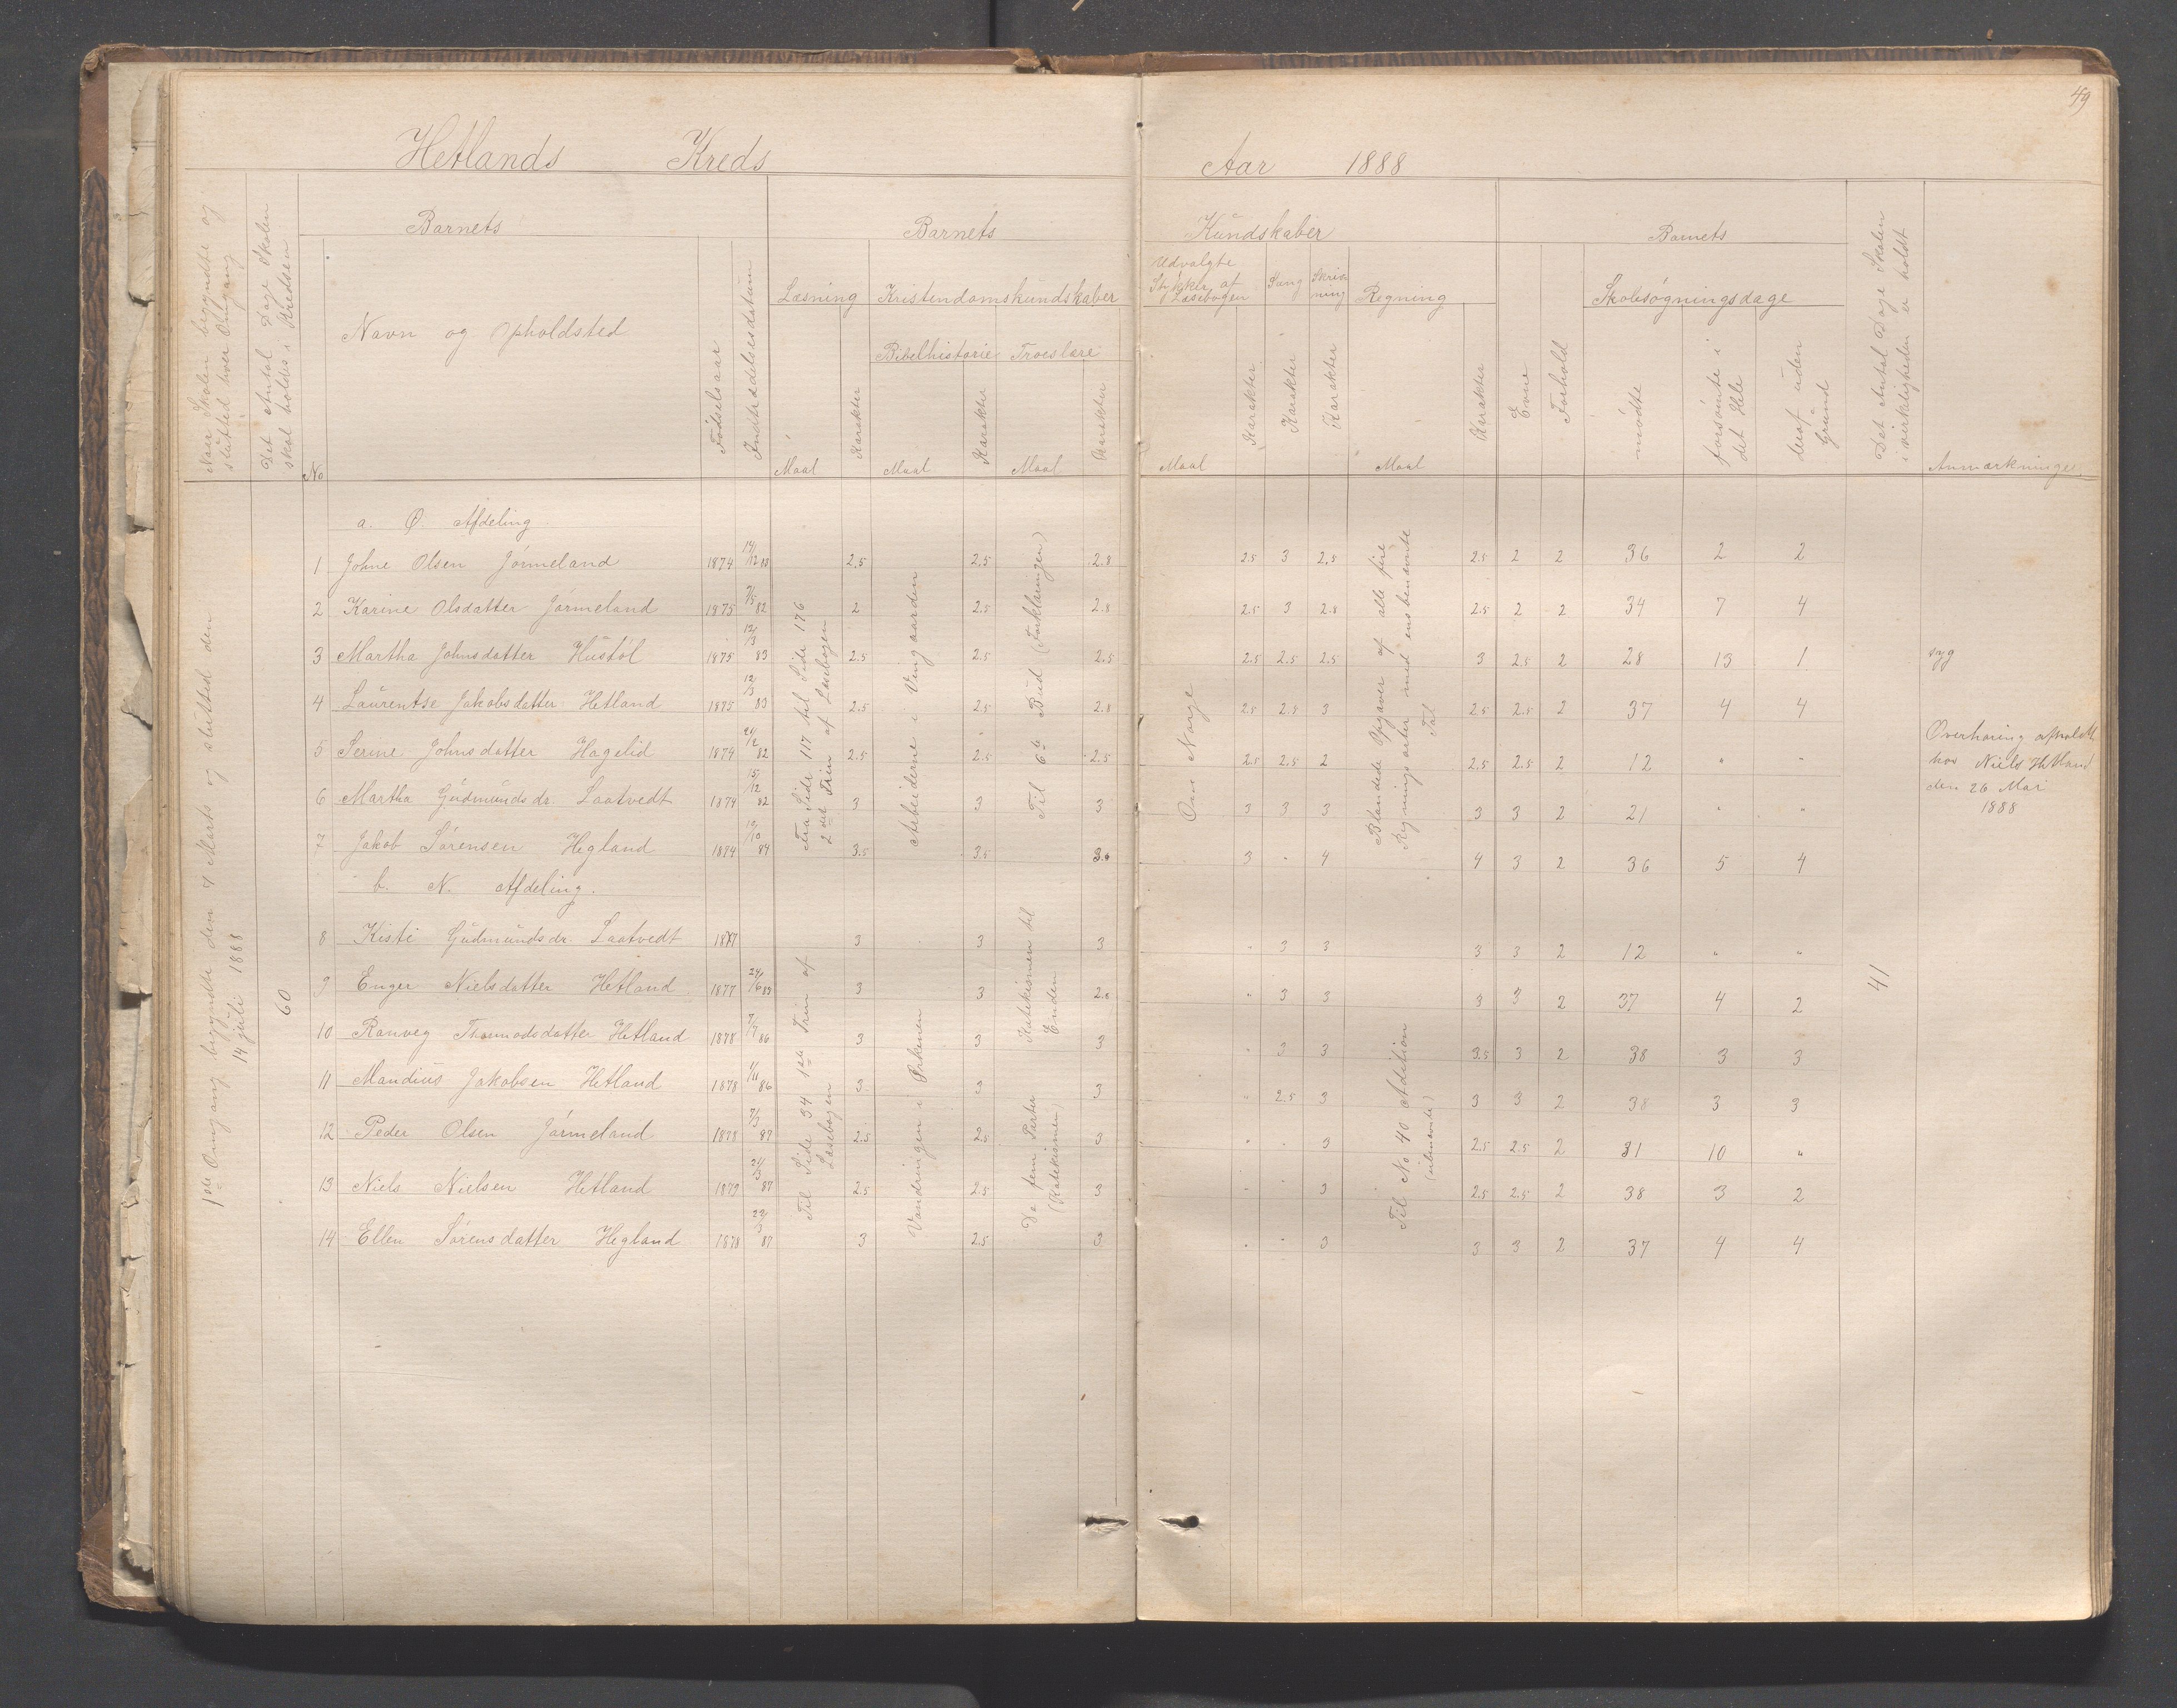 49
Hetlands Kreds Aar 1888
Naar Skolen begyndte og sluttede hver Omgang
Det Antal Dage Skolen skal holdes i Kredsen
Barnets
Barnets
Kundskaber
Barnets
No
Navn og Opholdsted
Fødselsaar
Indtrædelsesdatum
Læsning
Kristendomskundskaber
Bibelhistorie
Troeslære
Udvalgte Stykker af Læsebogen
Sang
Skrivning
Regning
Maal
Karakter
Maal
Karakter
Maal
Karakter
Maal
Karakter
Karakter
Karakter
Maal
Karakter
Evne
Forhold
Skolesøgningsdage
mødte
forsømte i det Hele
deraf uden Grund
Det Antal Dage Skolen i virkeligheden er holdt
Anmærkninger
1ste Omgang begyndte den 7 Marts og slutted den 14 juli 1888
60
a. Ø. Afdeling
1 Johne Olsen Jörmeland 1874 14/12 83 2.5 2.5 2.8 2.5 3 2.5 2.5 2 2 36 2 2
2 Karine Olsdatter Jørmeland 1875 7/5 82 2 2.5 2.8 2.5 3 2.8 2.5 2 2 34 7 4
3 Martha Johnsdatter Hustöl 1875 12/3 83 2.5 2.5 2.5 2.5 2.5 2.5 3 2.5 2 28 13 1 syg
4 Laurentse Jakobsdatter Hetland 1875 12/3 83 2.5 2.5 2.8 2.5 2.5 3 2.5 2.5 2 37 4 4
5 Serine Johnsdatter Hagelid 1874 24/2 82 2.5 2.5 2.5 2.5 2.5 2 2.5 2.5 2 12 " "
6 Martha Gudmundsdr. Laatvedt 1874 15/12 82 3 3 3 3 3 3 3 3 2 21 " "
7 Jakob Sørensen Hegland 1874 10/10 84 3.5 3.5 3 " 4 4 3 2 36 5 4
Fra Side 117 til Side 176 2det Trin af Læsebogen
Arbeiderne i Vingaarden
Til 6te Bud (Forklaringen)
Om Norge
Blandede Opgaver af alle fire Regningsarter med ensbenævnte Tal
Overhøring afholdt
hos Niels Hetland
den 26 Mai
1888
b. N. Afdeling.
8 Kisti Gudmundsdr. Laatvedt 1877 3 3 3 " 3 3 3 3 2 12 " "
9 Enger Nielsdatter Hetland 1877 24/6 83 3 3 2.8 " 3 3 3 3 2 37 4 2
10 Ranveg Thormodsdatter Hetland 1878 7/7 86 3 3 3 " 3 3 3.5 3 2 38 3 3
11 Mandius Jakobsen Hetland 1878 1/11 86 3 3 3 " 2.5 3 3 3 2 38 3 3
12 Peder Olsen Jørmeland 1878 7/3 87 2.5 2.5 3 " " 3 2.5 2.5 2 31 10 "
13 Niels Nielsen Hetland 1879 21/3 87 2.5 2.5 3 " " 3 2.5 2.5 2 38 3 2
14 Ellen Sørensdatter Hegland 1878 22/3 87 3 2.5 3 " " 3 3 3 2 37 4 4
Til Side 34 1ste Trin af Læsebogen
Vandringen i Ørkenen
Katekismen til Enden
De fem Parter (Katekismen)
Til No 40 Addition (ubenævnte)
41